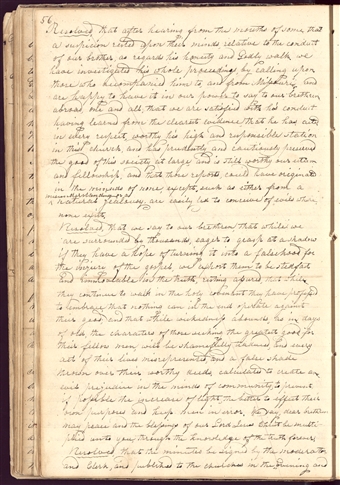 56
Resolved that after hearing from the mouths of some, that
a suspicion rested upon their minds, relative to the conduct
of our brother, as regards his honesty and Godly walk, we
have investigated his whole proceedings by calling upon
those who accompanied him to and from Missouri, and
are happy to have it in our power to say to our brethren
abroad, one and all, that we are satisfied with his conduct
having learned from the clearest evidence, that he has acted
in every respect worthy his high and responsible station
in this church, and has prudently and cautiously preserved
the good of this society at large and is still worthy our esteem
and fellowship, and that those reports could have originated
in the minds of none, except such as either from a
a natural jealousy, are easily led to conceive of evils where
none exists
Resolved, that we say to our brethren, that while we
are surrounded by thousands, eager to grasp at a shadow
if they have a hope of turning it into a falsehood for
the injury of the gospel, we exhort them to be stedfast
and immovable in the truth, resting assured, that while
they continue to walk in the holy covenant they have professed
to embrace that nothing can in the end operate against
their good, and that while wickedness abounds, as in days
of old, the characters of those seeking the greatest good for
their fellow men, will be shamefully traduced, and every
act of their lives misrepresented, and a false shade
thrown over their worthy deeds, calculated to create an
evil prejudice in the minds of community, to prevent
if possible the increase of light, the better to effect their
own purposes and keep men in error. We say, dear brethren
may peace and the blessings of our Lord Jesus Christ be multi-
plied unto you, through the knowledge of the truth forever.
Resolved, that the minutes be signed by the moderator
and Clerk, and published to the churches in the Evening and